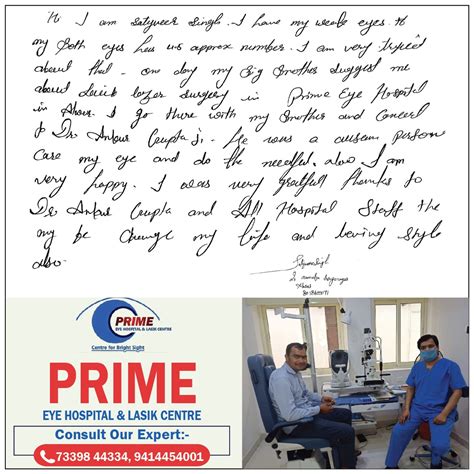 I am Satyveer Singh. I have my weak eyes.
my both eyes has approx number. I am very
about that. one day my big brother suggest me
about lasik lazer surgery in Prime Eye Hospital
in I go there with my brother and
to Dr. Ankur Gupta ji. He was a person
care my eye and do the needful. also I am
very happy. I very thanks to
Dr Ankur Gupta and All Hospital Staff the
my be change my life and living style
also.
PRIME
EYE HOSPITAL & LASIK CENTRE
Centre for Bright Sight
PRIME
EYE HOSPITAL & LASIK CENTRE
Consult Our Expert:-
73398 44334, 9414454001